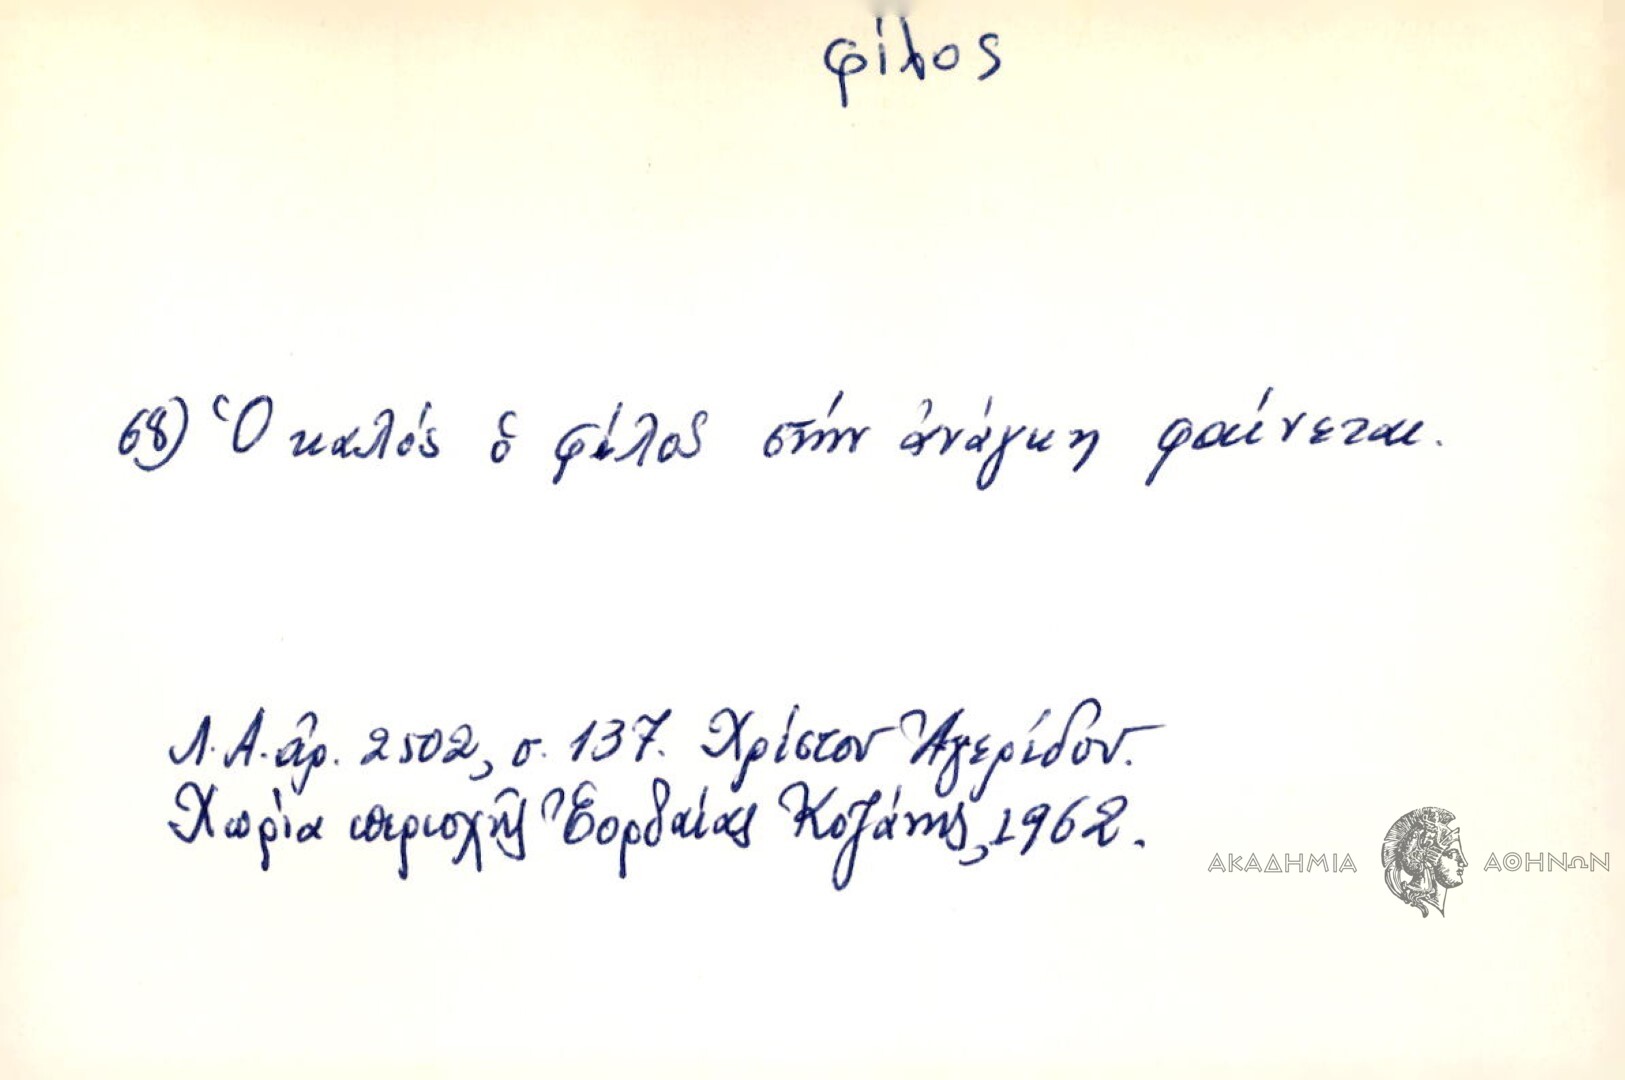 φίλος
68) Ὁ καλός ὁ φίλος στήν ἀνάγκη φαίνεται.
Λ.Α. ἀρ. 2502, σ. 137. Χρίστου Ἀγερίδου.
Χωρία περιοχῆς Ἑορδαίας Κοζάνης, 1962.
ΑΚΑΔΗΜΙΑ ΑΘΗΝΩΝ